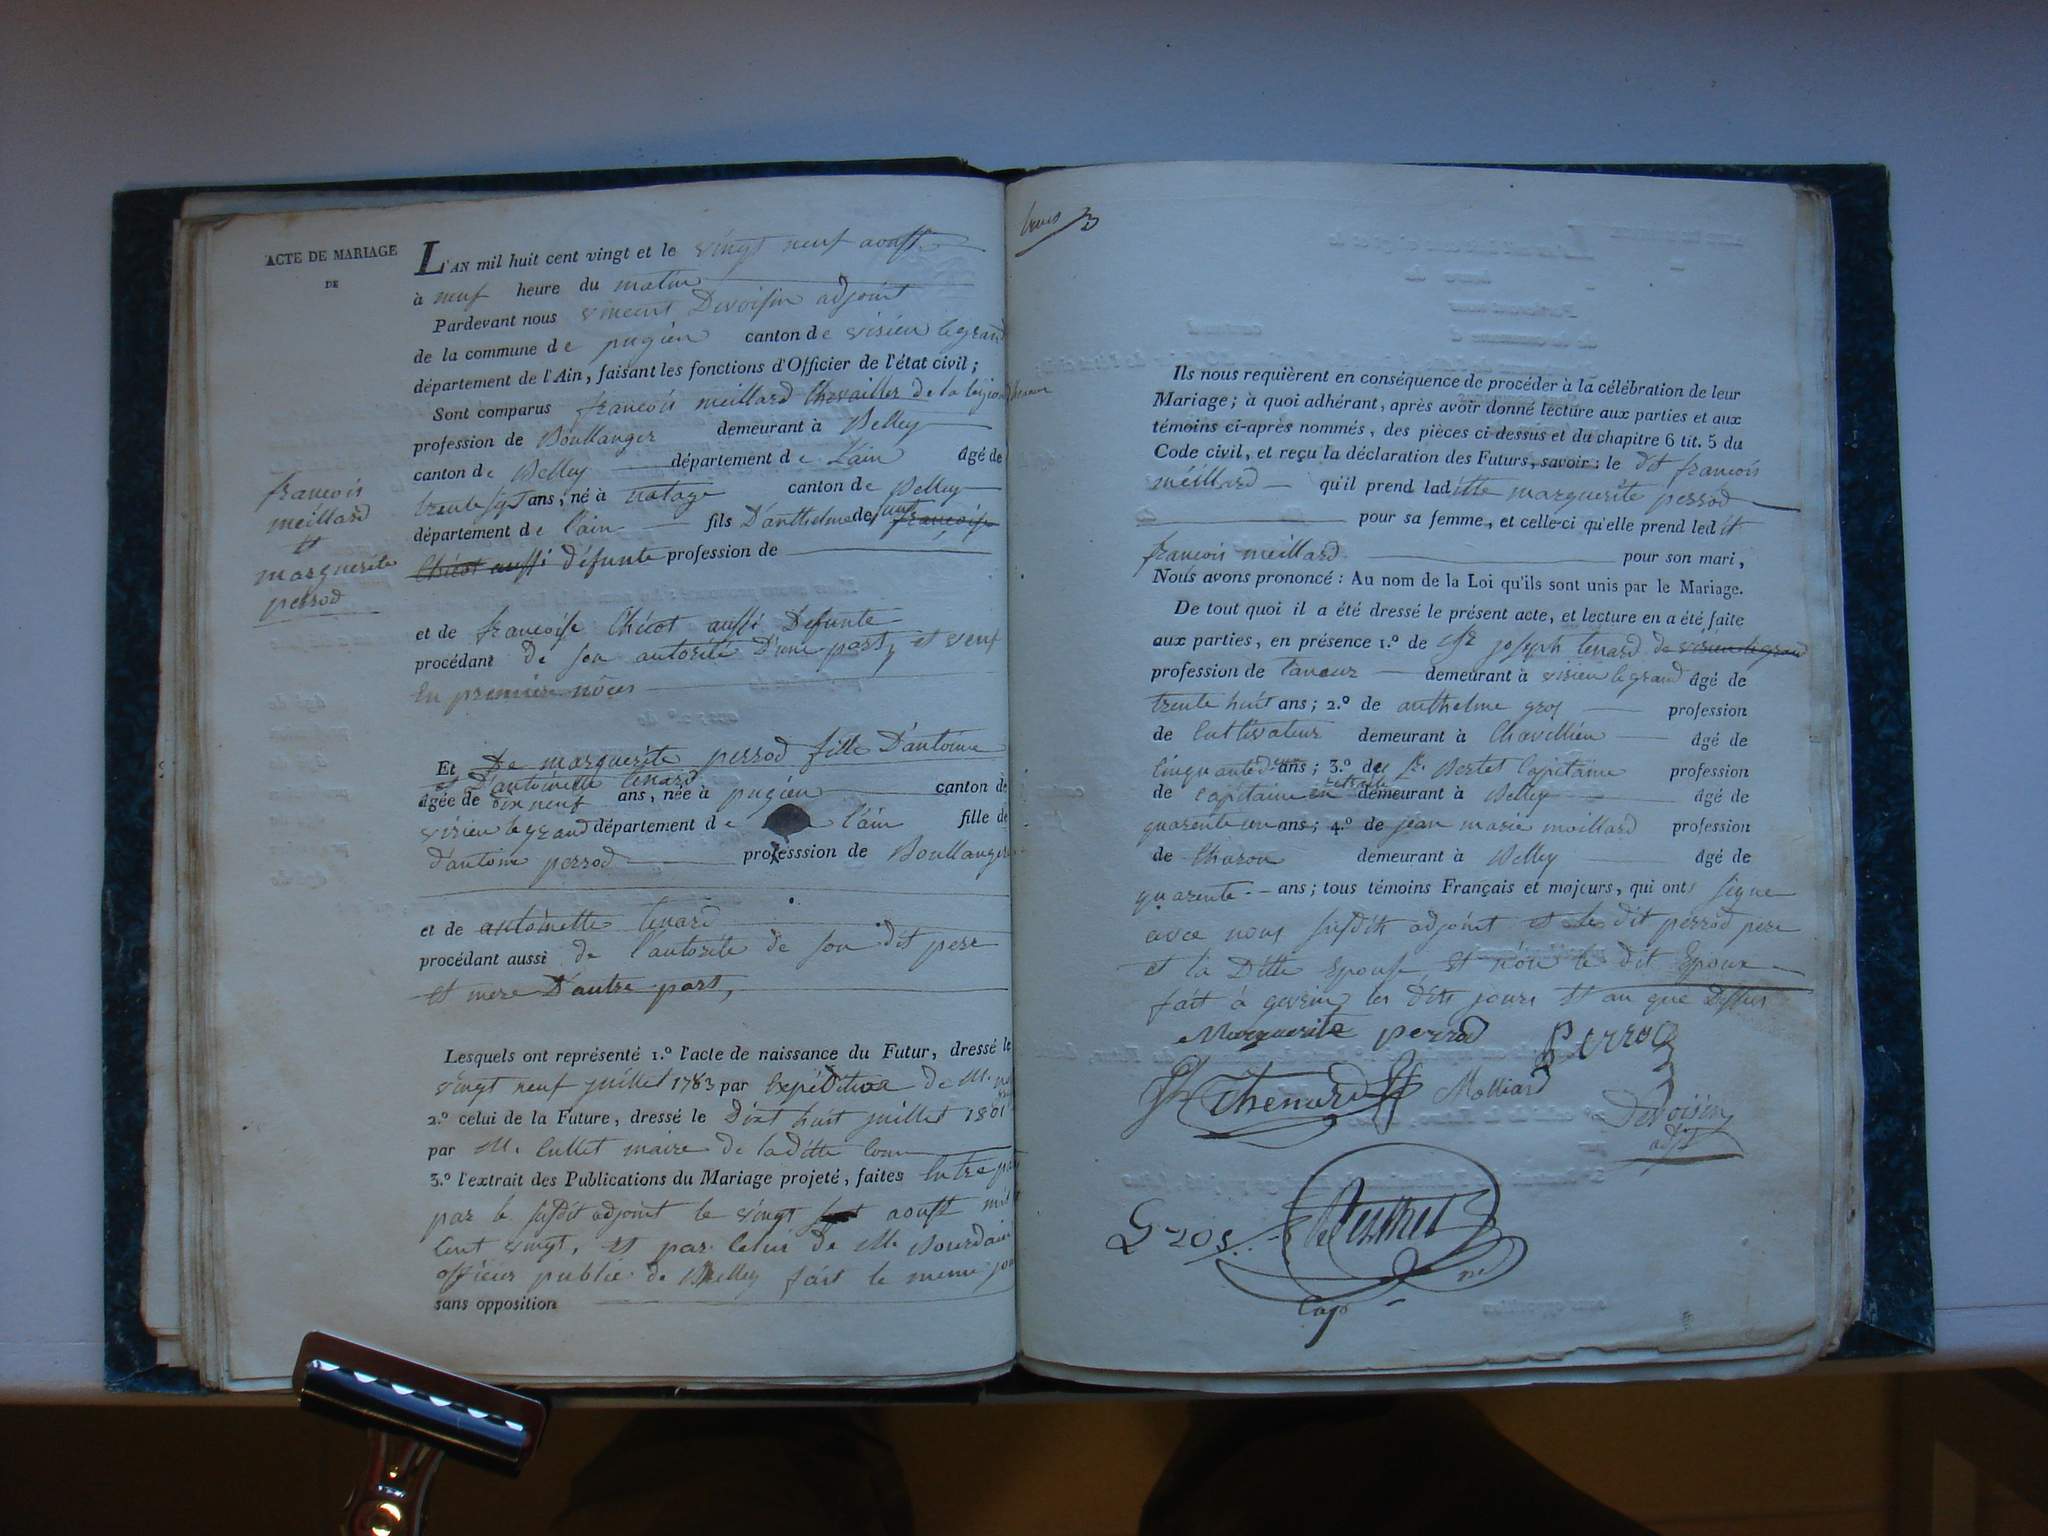 ACTE DE MARIAGE
DE
françois
meillard
et
marguerite
perrod
L'AN mil huit cent vingt et le vingt neuf aoust
à neuf heure du matin
Pardevant nous vincent Devoisin adjoint
de la commune de pugieu canton de virieu le grand
département de l'Ain, faisant les fonctions d'Officier de l'état civil;
Sont comparus françois meillard Chevallier de la légion d'honneur
profession de Boullanger demeurant à Belley
canton de Belley département de L'ain âgé de
trente sept ans, né à natage canton de Belley
département de l'ain fils D'anthelme de françoise
Chicot aussi défunte profession de
et de françoise Chicot aussi Defunte
procédant de son autorité D'une part, et veuf
En premiere nôces
Et De marguerite perrod fille D'antoine
et D'antoinette tenard
âgée de dix neuf ans, née à pugieu canton de
virieu le grand département de l'ain fille de
d'antoine perrod professsion de Boullanger
et de antoinette tenard
procédant aussi de l'autorité de son dit pere
et mere D'autre part,
Lesquels ont représenté 1.º l'acte de naissance du Futur, dressé le
vingt neuf juillet 1783 par Expédition de M.
2.º celui de la Future, dressé le Dixt huit juillet 1801
par M. Cullet maire de la ditte Com
3.º l'extrait des Publications du Mariage projeté, faites
par le susdit adjoint le vingt aoust mil
Cent vingt, et par Celui de M. Bourdain
officier public de Belley fait le meme jour
sans opposition
Ils nous requièrent en conséquence de procéder à la célébration de leur
Mariage; à quoi adhérant, après avoir donné lecture aux parties et aux
témoins ci-après nommés, des pièces ci-dessus et du chapitre 6 tit. 5 du
Code civil, et reçu la déclaration des Futurs, savoir: le dit françois
meillard qu'il prend laditte marguerite perrod
pour sa femme, et celle-ci qu'elle prend ledit
françois meillard pour son mari,
Nous avons prononcé: Au nom de la Loi qu'ils sont unis par le Mariage.
De tout quoi il a été dressé le présent acte, et lecture en a été faite
aux parties, en présence 1.º de joseph tenard de virieu le grand
profession de taneur demeurant à virieu le grand âgé de
trente huit ans; 2.º de anthelme gros profession
de Cultivateur demeurant à Chavillieu âgé de
Cinquante ans; 3.º de Bertet Capitaine profession
de Capitaine en retraite demeurant à Belley âgé de
quarente un ans; 4.º de jean marie moillard profession
de Charon demeurant à Belley âgé de
quarente ans; tous témoins Français et majeurs, qui ont signe
avec nous susdits adjoint et le dit perrod pere
et la Ditte Epouse, et non le dit Epoux
fait à les dits jours et an que Dessus
Marguerite perrod Perrod
Thenard Molliard
Devoisin
adjt
Gros
Cap